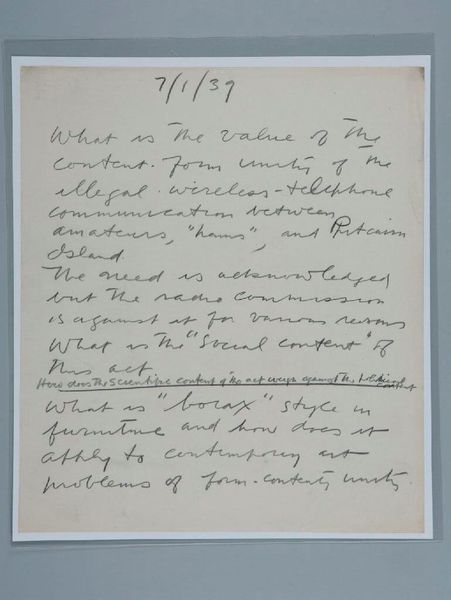 7/1/39
What is the value of the
content-form unity of the
illegal-wireless-telephone
communication between
amateurs, "hams", and Pitcairn
Island.
The need is acknowledged
but the radio commission
is against it for various reasons
What is the "Social content" of
this act
How does the scientific content of the act weigh against the content
What is "borax" style in
furniture and how does it
apply to contemporary art
problems of form-content unity.